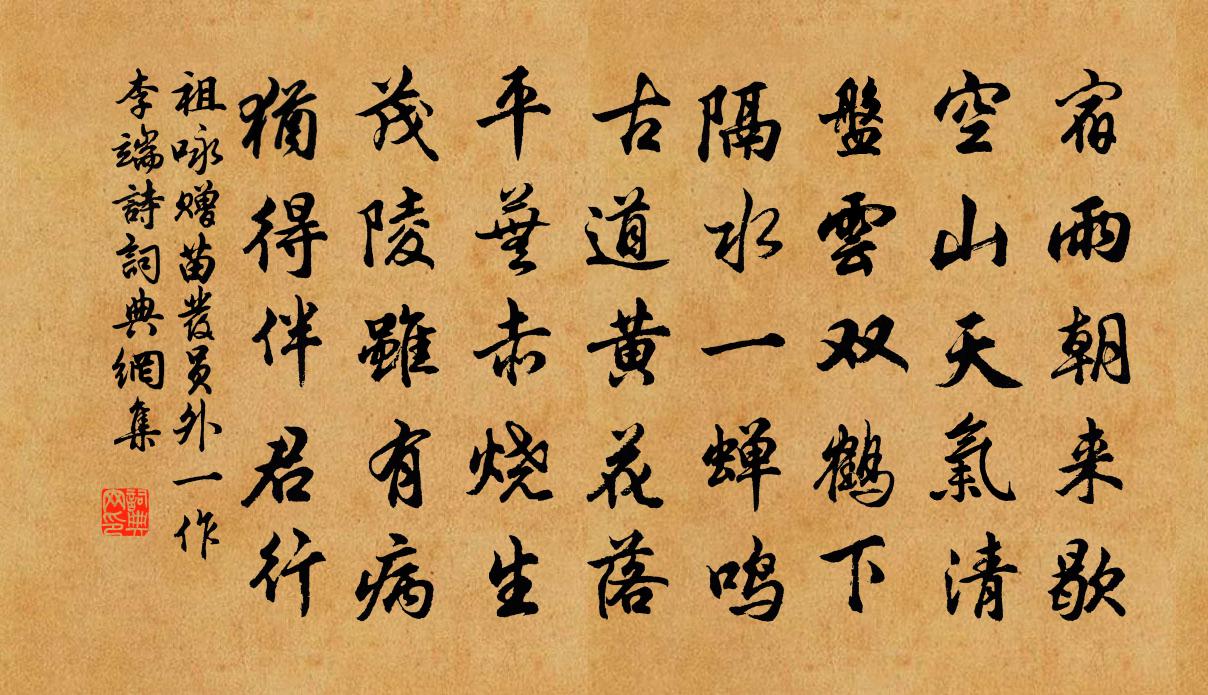 宿雨朝来歇
空山天氣清
盤雲双鶴下
隔水一蝉鸣
古道黄花落
平蕪赤烧生
茂陵雖有病
猶得伴君行
祖咏赠苗發员外一作
李端詩詞典網集
詞典網印